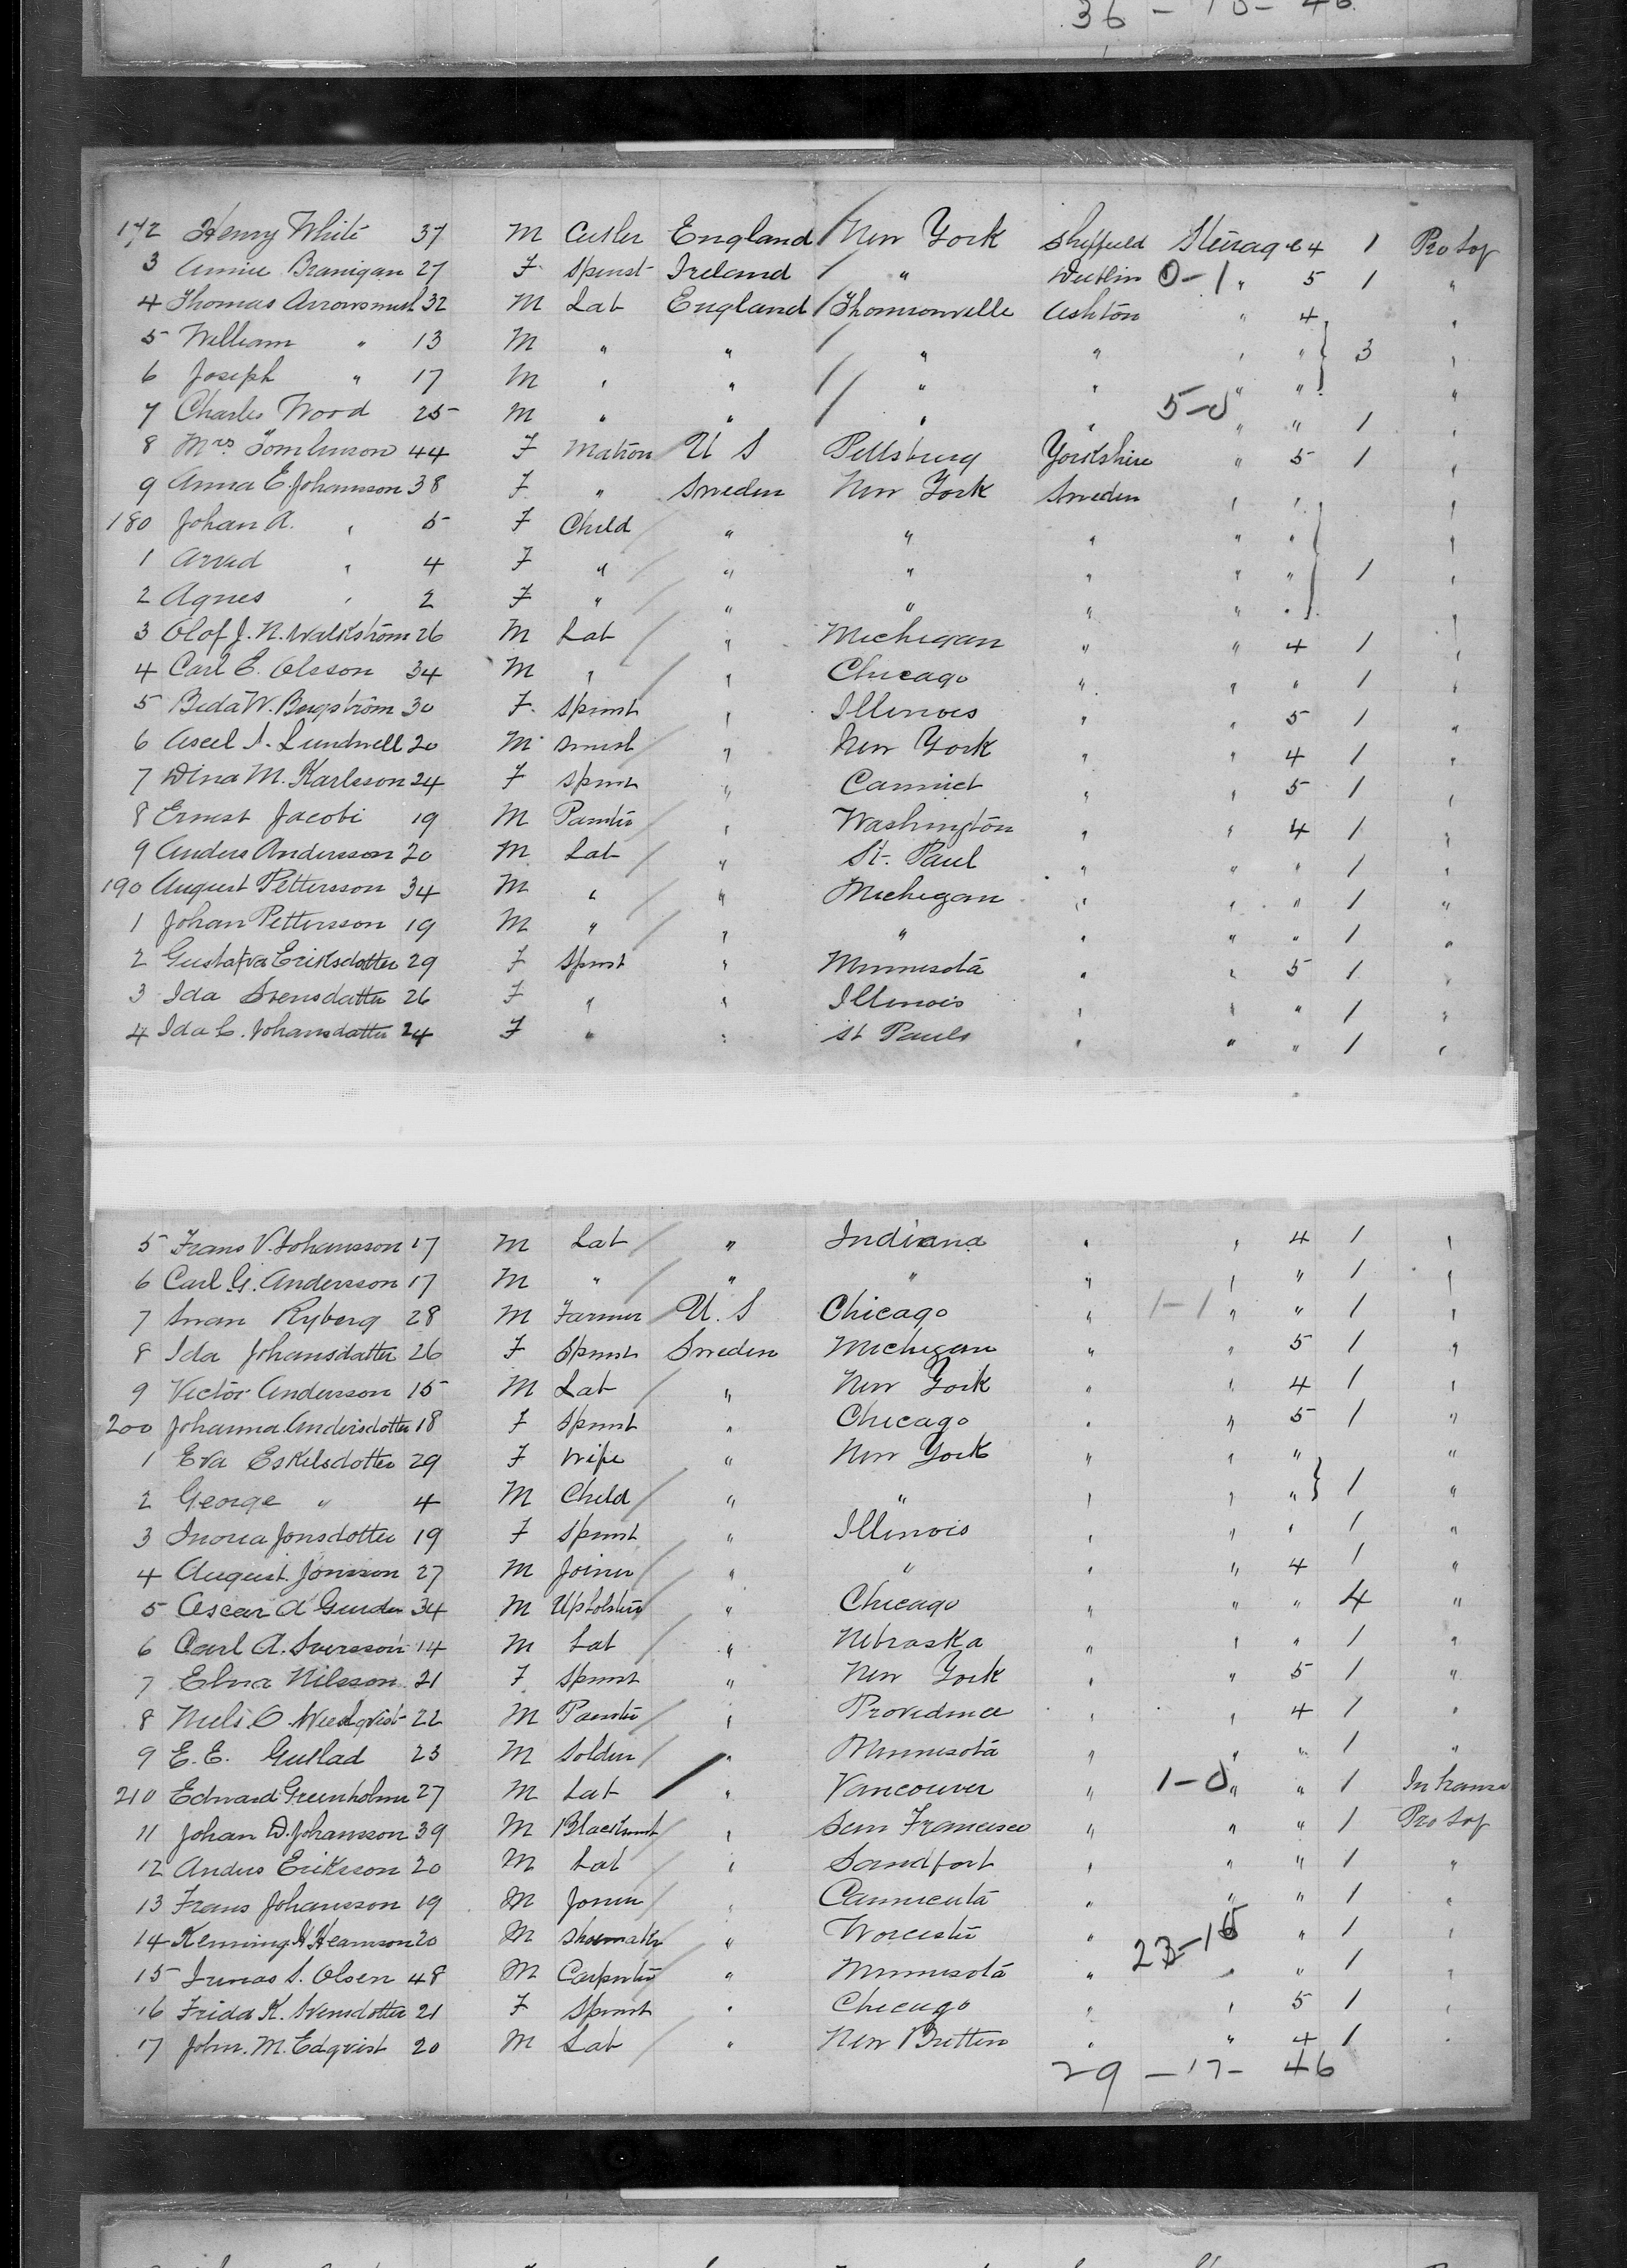 36 - 10 - 46
172 Henry White 37 M Cutler England New York Sheffield Steirage 4 1 Pro Soj
3 Annie Branigan 27 F Spinst Ireland " Dublin 0-1 " 5 1 "
4 Thomas Arrowsmith 32 M Lab England Thomsonville Ashton " 4 "
5 William " 13 M " " " " " " 3 "
6 Joseph " 17 M " " " " " " "
7 Charles Wood 25 M " " " " 5-0 " " 1 "
8 Mrs Tomlinson 44 F Matron U S Pittsburg Yorkshire " 5 1 "
9 Anna E. Johansson 38 F " Sweden New York Sweden " " "
180 Johan A. " 5 F Child " " " " " "
1 Arvid " 4 F " " " " " " 1 "
2 Agnes " 2 F " " " " " " "
3 Olof J. N. Wallström 26 M Lab " Michigan " " 4 1 "
4 Carl E. Olsson 34 M " " Chicago " " " 1 "
5 Beda W. Bergström 30 F Spinst " Illinois " " 5 1 "
6 Axel A. Lundwell 20 M Smith " New York " " 4 1 "
7 Dina M. Karlsson 24 F Spinst " Connict " " 5 1 "
8 Ernest Jacobi 19 M Painter " Washington " " 4 1 "
9 Anders Andersson 20 M Lab " St. Paul " " " 1 "
190 August Pettersson 34 M " " Michigan " " " 1 "
1 Johan Pettersson 19 M " " " " " " 1 "
2 Gustafva Eriksdotter 29 F Spinst " Minnesota " " 5 1 "
3 Ida Svensdatter 26 F " " Illinois " " " 1 "
4 Ida C. Johansdatter 24 F " " St Pauls " " " 1 "
5 Frans V. Johansson 17 M Lab " Indiana " " 4 1 "
6 Carl G. Andersson 17 M " " " " " " 1 "
7 Swan Ryberg 28 M Farmer U. S Chicago " 1-1 " " 1 "
8 Ida Johansdatter 26 F Spinst Sweden Michigan " " 5 1 "
9 Victor Andersson 15 M Lab " New York " " 4 1 "
200 Johanna Andersdotter 18 F Spinst " Chicago " " 5 1 "
1 Eva Eskelsdotter 29 F Wife " New York " " " "
2 George " 4 M Child " " " " " 1 "
3 Jonsdotter 19 F Spinst " Illinois " " " 1 "
4 August Jonsson 27 M Joiner " " " " 4 1 "
5 Oscar A 34 M Upholster " Chicago " " " 4 "
6 Carl A. Svensson 14 M Lab " Nebraska " " " 1 "
7 Elna Nilsson 21 F Spinst " New York " " 5 1 "
8 Nils O. 22 M Painter " Providence " " 4 1 "
9 E. E. Gullad 23 M Soldier " Minnesota " " " 1 "
210 Edward Greenholm 27 M Lab " Vancouver " 1-0 " " 1 In transit
11 Johan D. Johansson 39 M Blacksmit " San Francisco " " " 1 Pro Soj
12 Anders Eriksson 20 M Lab " Sandfort " " " 1 "
13 Frans Johansson 19 M Joiner " Connicuta " " " 1 "
14 Kenning H. 20 M Shoemaker " Worcester " 23-15 " 1 "
15 S. Olsen 48 M Carpenter " Minnesota " " " 1 "
16 Frida K. Svensdotter 21 F Spinst " Chicago " " 5 1 "
17 John. M. Edqvist 20 M Lab " New Britten " " 4 1 "
29 - 17 - 46